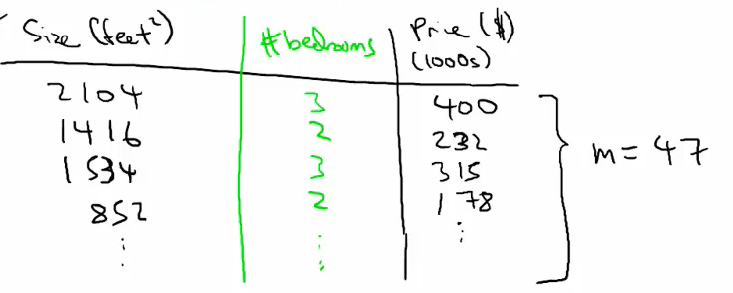 Size (feet²) #bedrooms Price ($)
(1000s)
2104 3 400
1416 2 232
1534 3 315
852 2 178
⋮ ⋮ ⋮
m = 47